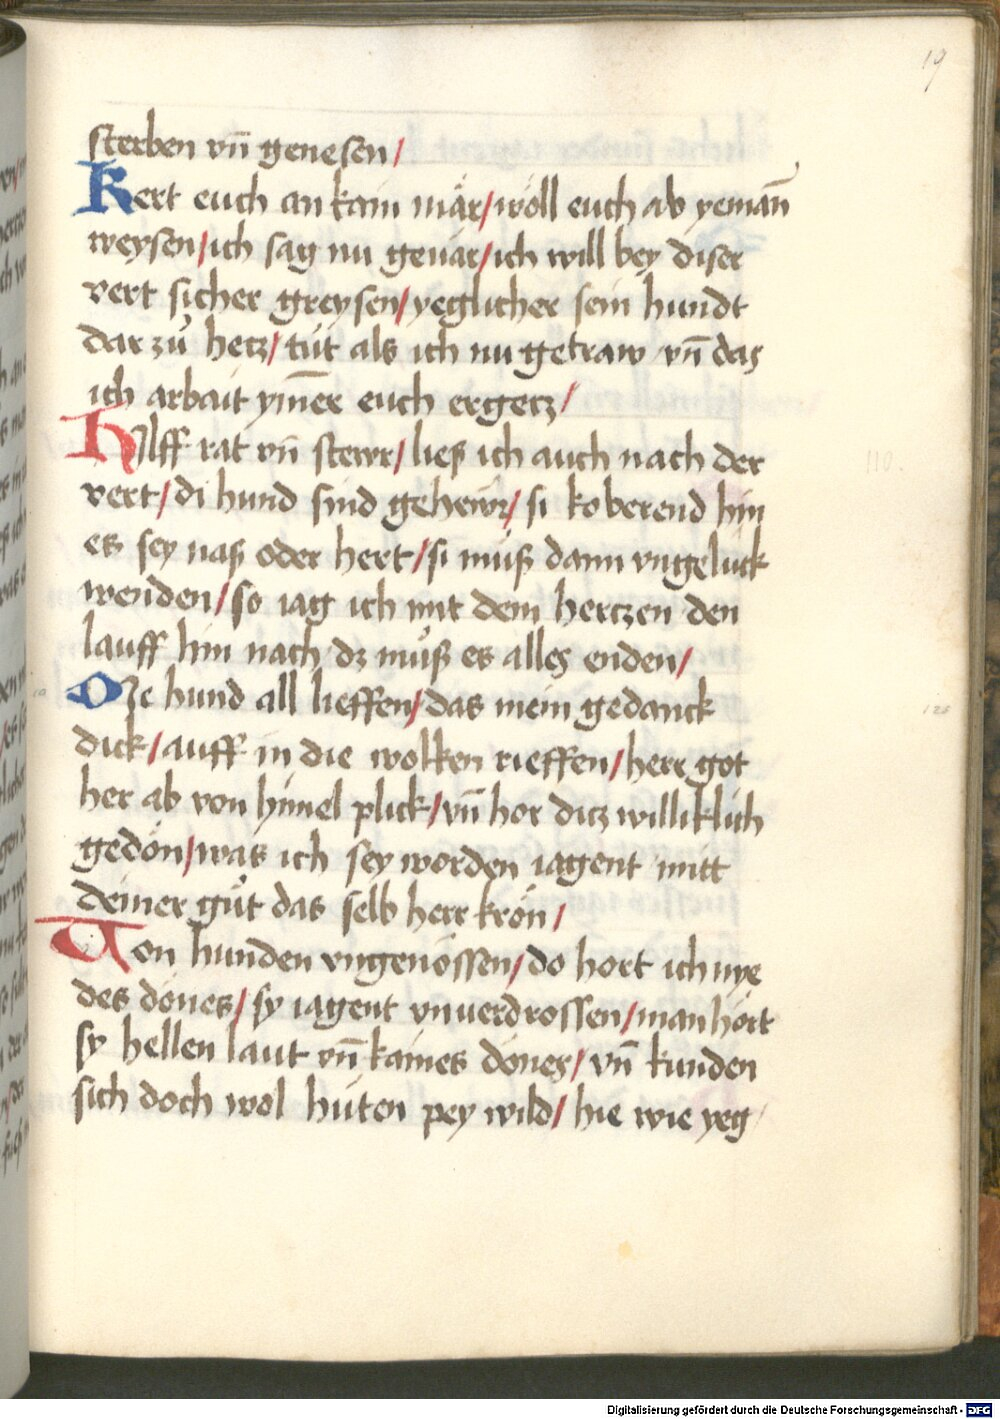 19
sterben vn̄ genesen /
Kert euch an kain mär / wöll euch ab yeman̄
weysen / ich sag nu geuär / ich will bey diser
vert sicher greysen / yeglicher sein hundt
dar zů hetz / tüt als ich nu getraw vn̄ das
ich arbait ym̄er euch ergetz /
Hilff rat vn̄ stewr / ließ ich auch nach der
vert / di hund sind gehewr / si koberend hin
es sey naß oder hert / si müß dann vngeluck
wenden / so iag ich mit dem hertzen den
lauff hin nach dz můß es alles enden /
Die hund all lieffen / das mein gedanck
dick / auff in die wolken rieffen / herr got
her ab von hymel plick / vn̄ hor ditz williklich
gedön / was ich sey worden iagent mitt
deiner gůt das selb herr krön /
Von hunden vngenössen / do hort ich nye
des dönes / sy iagent vnuerdrossen / man hört
sy hellen laut vn̄ kaines dönes / vn̄ kunden
sich doch wol hüten pey wild / hie wie yeg
110.
Digitalisierung gefördert durch die Deutsche Forschungsgemeinschaft - DFG